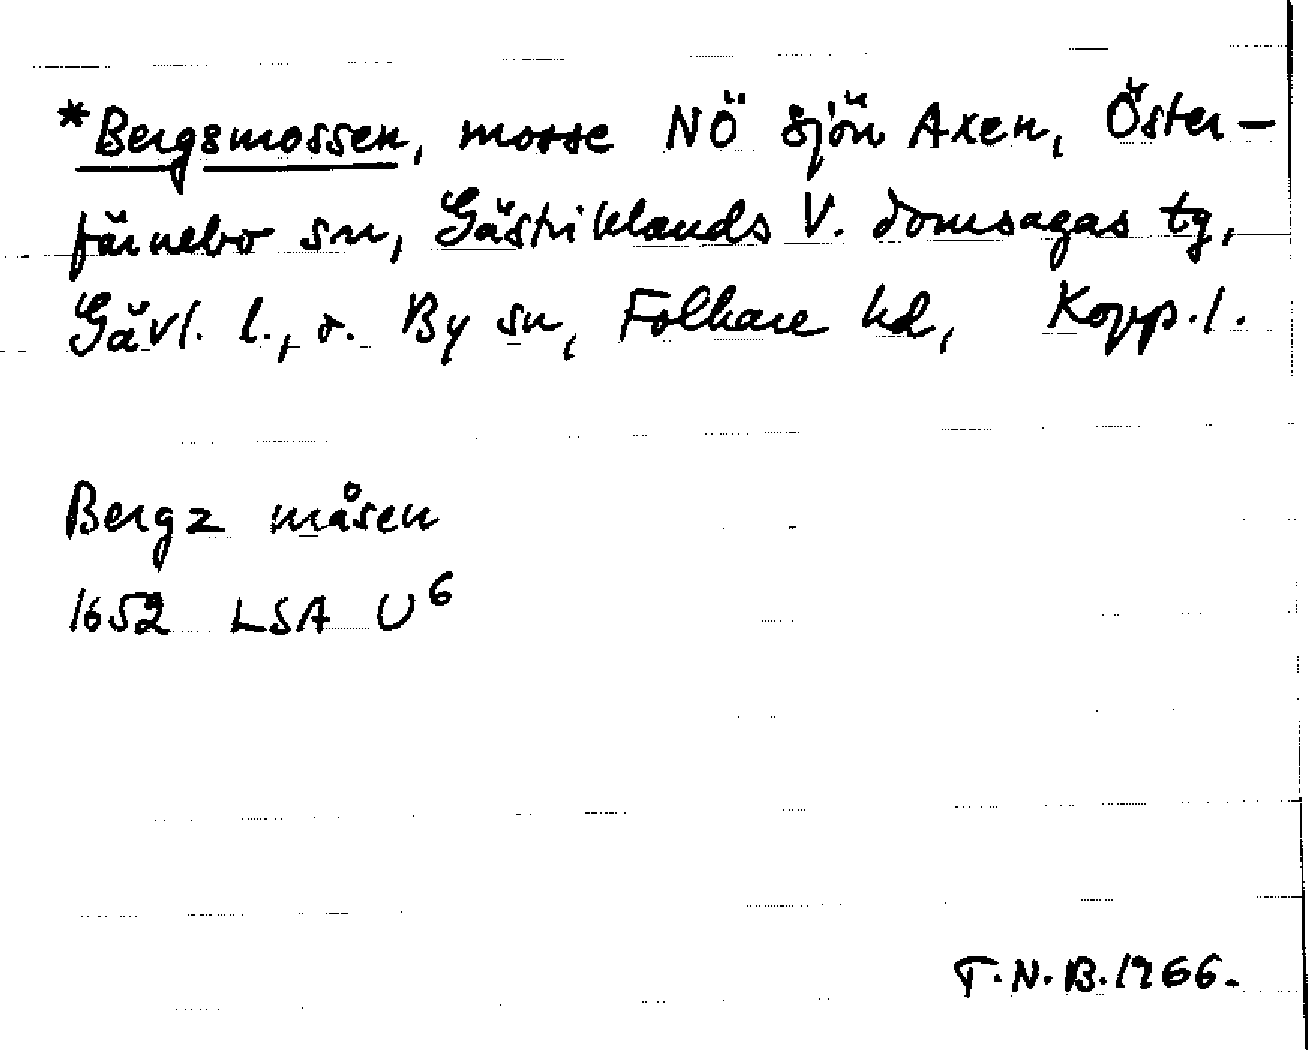 *Bergsmossen, mosse NÖ sjön Axen, Öster-
färnebo sn, Gästriklands V. domsagas tg,
Gävl. l., o. By sn, Folkare hd, Kopp. l.
Bergz måsen
1652 LSA U6
T.N.B. 1966.